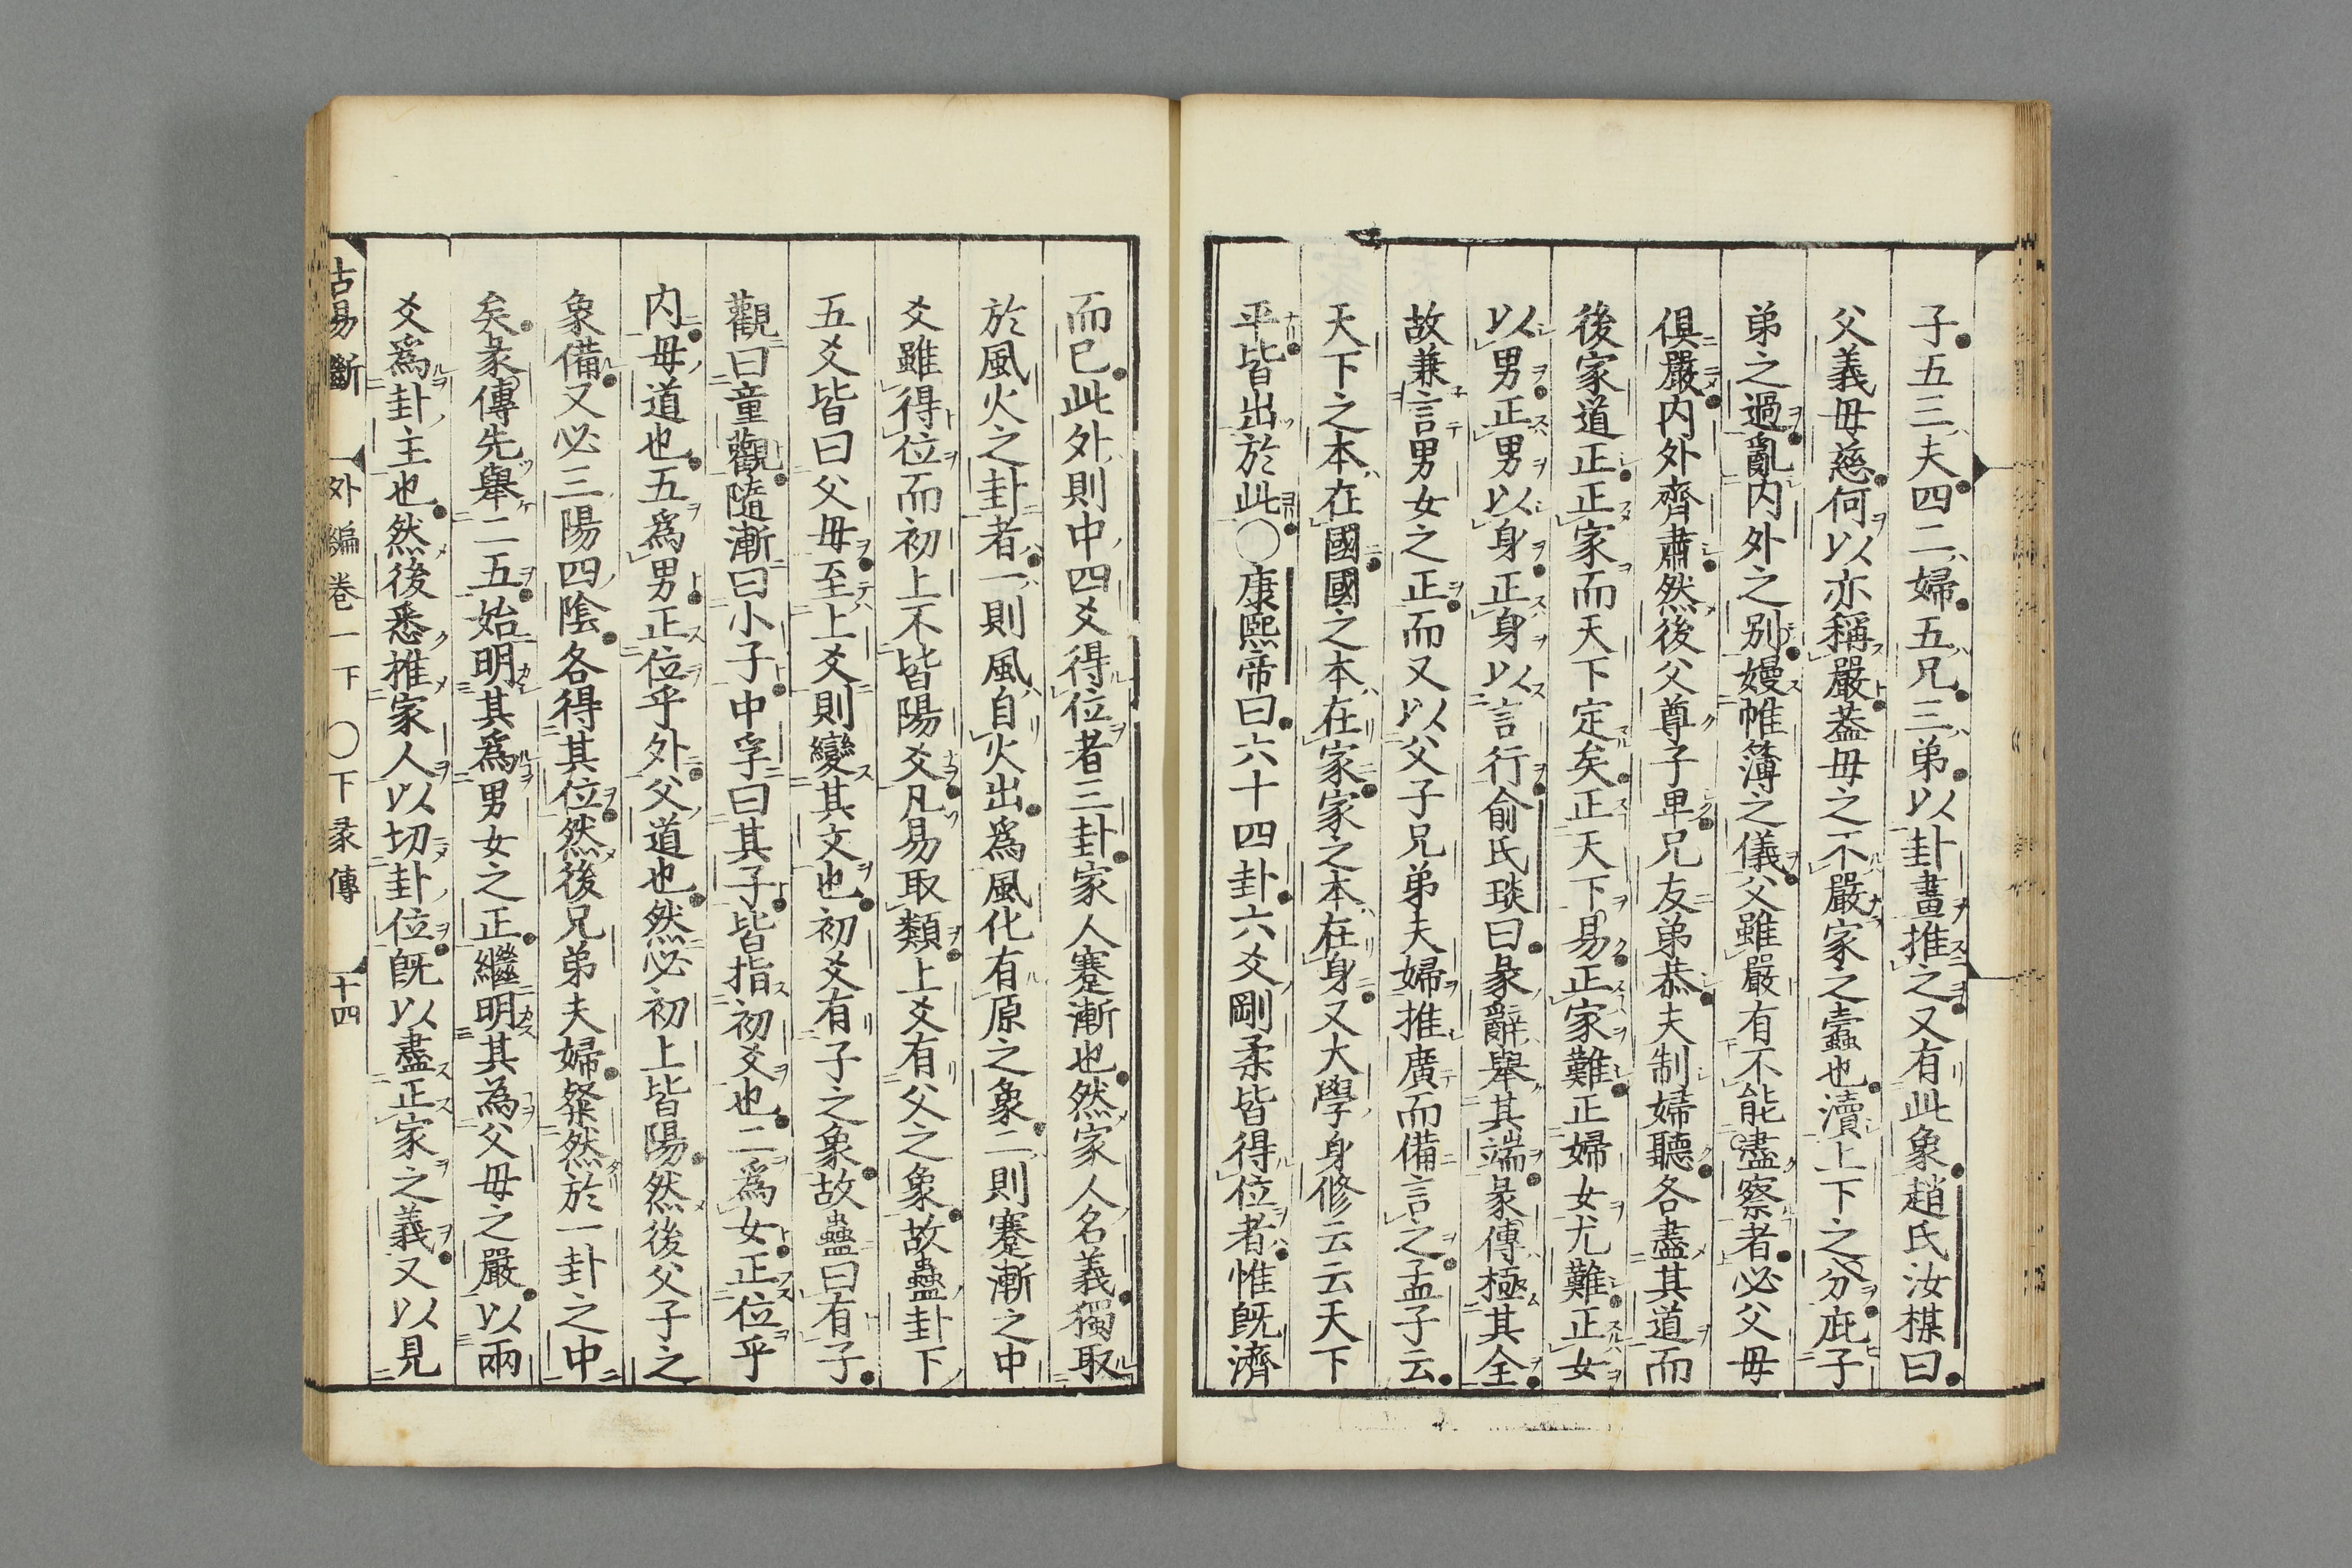 子五三夫四二婦五兄三弟以卦畫推之又有此象趙氏汝楳曰
父義母慈何以亦稱嚴蓋母之不嚴家之蠹也瀆上下之分庇子
弟之過亂内外之別嫚帷簿之儀父雖嚴有不能盡察者必父母
俱嚴内外齊肅然後父尊子卑兄友弟恭夫制婦聽各盡其道而
後家道正正家而天下定矣正天下易正家難正婦女尤難正女
以男正男以身正身以言行俞氏琰曰彖辭舉其端彖傳極其全
故兼言男女之正而又以父子兄弟夫婦推廣而備言之孟子云
天下之本在國國之本在家家之本在身又大學身修云云天下
平皆出於此〇康熙帝曰六十四卦六爻剛柔皆得位者惟既濟
而已此外則中四爻得位者三卦家人蹇漸也然家人名義獨取
於風火之卦者一則風自火出爲風化有原之象二則蹇漸之中
爻雖得位而初上不皆陽爻凡易取類上爻有父之象故蠱卦下
五爻皆曰父母至上爻則變其文也初爻有子之象故蠱曰有子
觀曰童觀隨漸曰小子中孚曰其子皆指初爻也二爲女正位乎
内母道也五爲男正位乎外父道也然必初上皆陽然後父子之
象備又必三陽四陰各得其位然後兄弟夫婦粲然於一卦之中
矣彖傳先舉二五始明其爲男女之正繼明其為父母之嚴以兩
爻爲卦主也然後悉推家人以切卦位既以盡正家之義又以見
古易斷 外編卷一下 〇下彖傳 十四